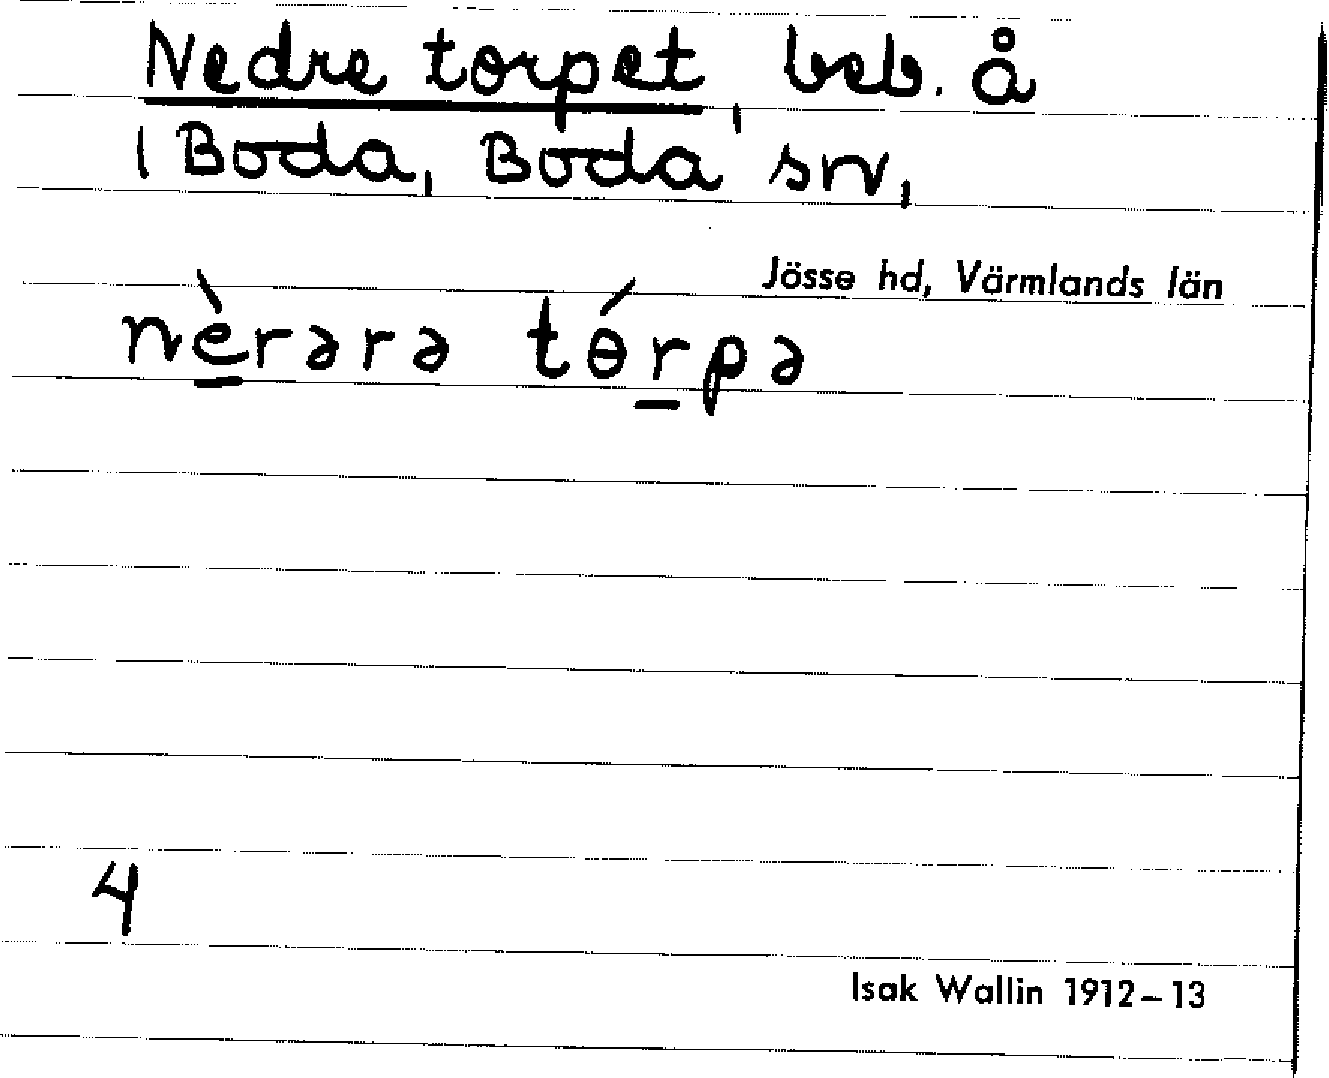 Nedre torpet, beb. å
1 Boda, Boda sn,
Jösse hd, Värmlands län
nèrərə tɵ́rpə
4
Isak Wallin 1912–13